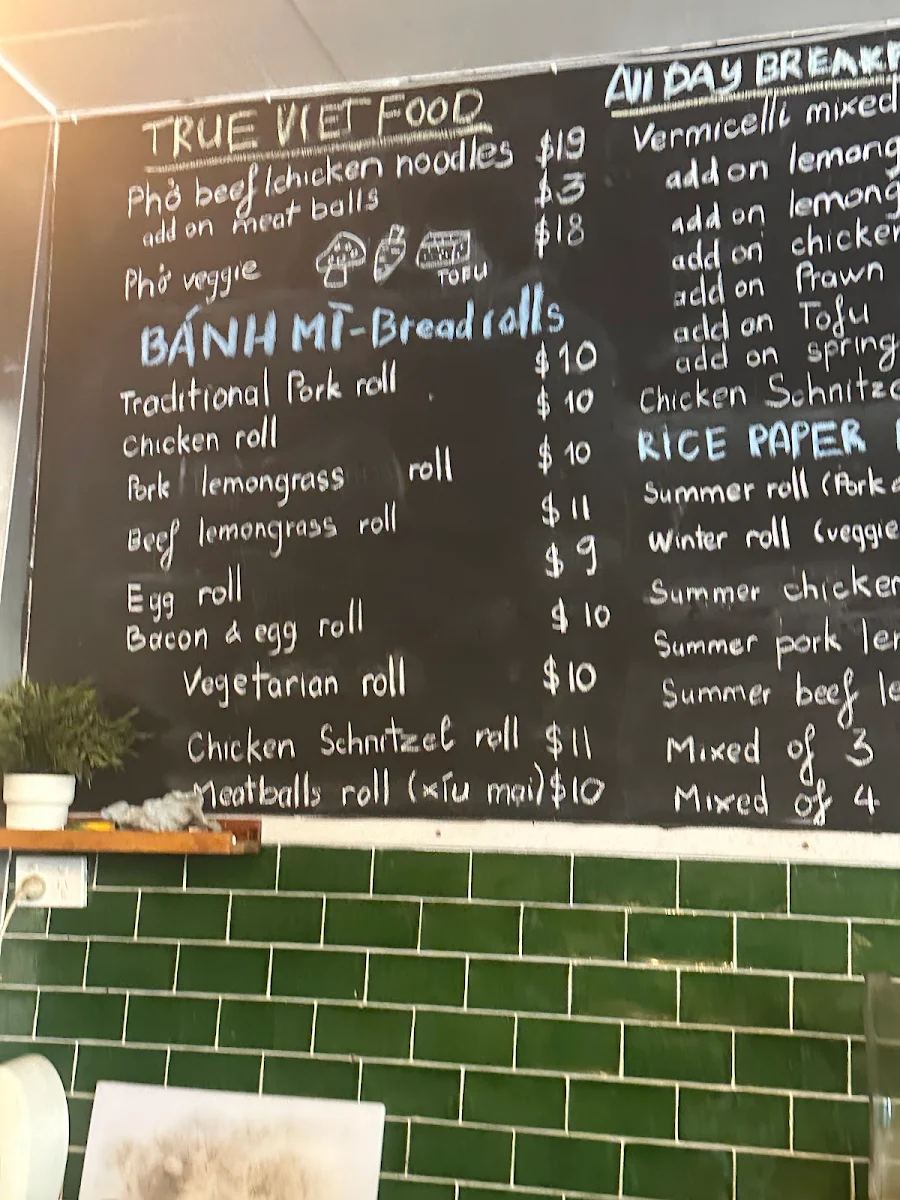 TRUE VIET FOOD
Phở beef/chicken noodles $19
add on meat balls $3
Phở veggie $18
TOFU
BÁNH MÌ-Bread rolls
Traditional Pork roll $10
Chicken roll $10
Pork lemongrass roll $10
Beef lemongrass roll $11
Egg roll $9
Bacon & egg roll $10
Vegetarian roll $10
Chicken Schnitzel roll $11
Meatballs roll (xíu mại) $10
All DAY BREAKF
Vermicelli mixed
add on lemong
add on lemong
add on chicken
add on Prawn
add on Tofu
add on spring
Chicken Schnitze
RICE PAPER
Summer roll (Pork
Winter roll (veggie
Summer chicken
Summer pork le
Summer beef le
Mixed of 3
Mixed of 4